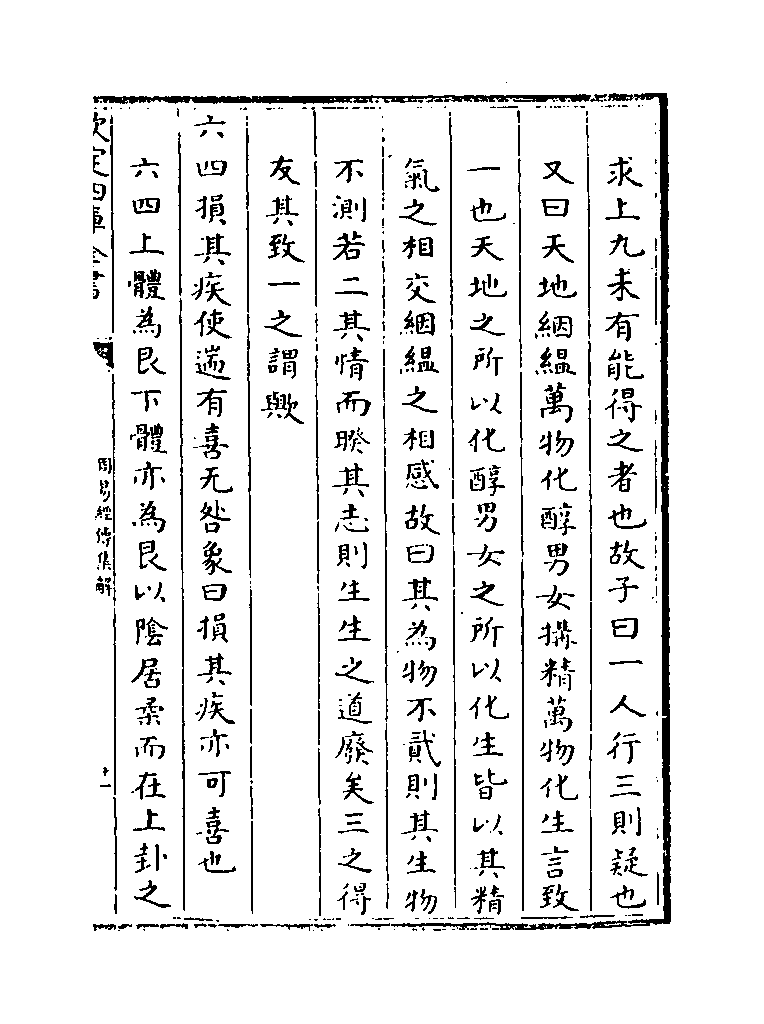 求上九未有能得之者也故子曰一人行三則疑也
又曰天地絪緼萬物化醇男女搆精萬物化生言致
一也天地之所以化醇男女之所以化生皆以其精
氣之相交絪緼之相感故曰其為物不貳則其生物
不測若二其情而暌其志則生生之道廢矣三之得
友其致一之謂歟
六四損其疾使遄有喜无咎象曰損其疾亦可喜也
六四上體為艮下體亦為艮以陰居柔而在上卦之
欽定四庫全書
周易經傳集解
十一